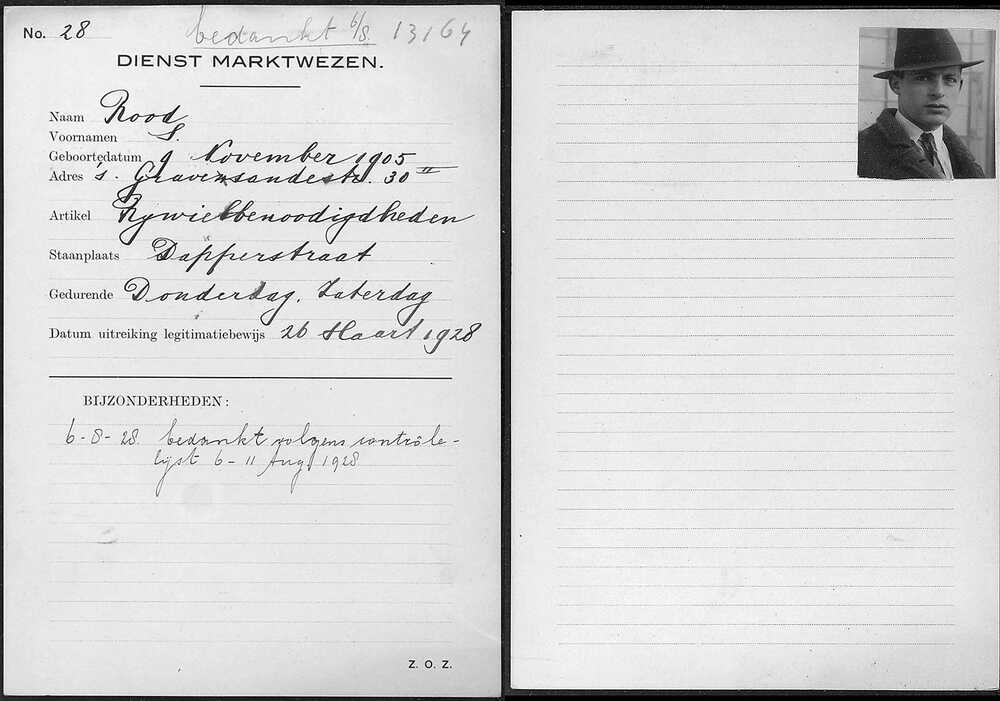 No. 28 bedankt 6/8. 13164
DIENST MARKTWEZEN.
Naam Rood
Voornamen S.
Geboortedatum 9 November 1905
Adres 's. Gravensandestr. 30 II
Artikel Rywielbenoodigdheden
Staanplaats Dapperstraat
Gedurende Donderdag, Zaterdag
Datum uitreiking legitimatiebewijs 26 Maart 1928
BIJZONDERHEDEN:
6-8-28. bedankt volgens contrôle-
lijst 6-11 Aug. 1928
Z. O. Z.